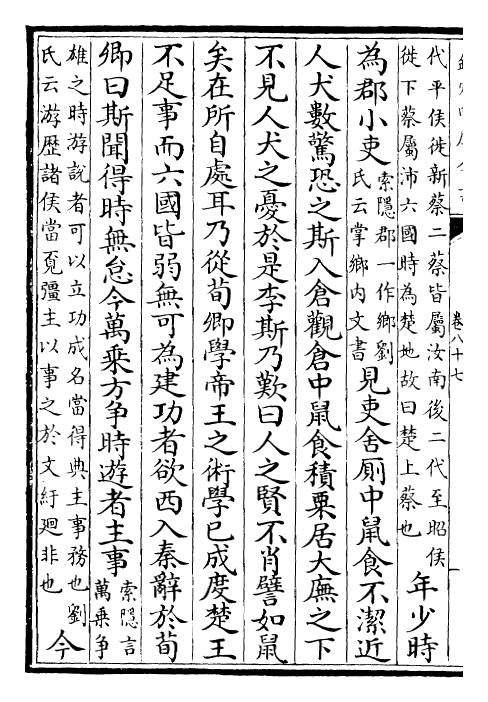 代平侯徙新蔡二蔡皆屬汝南後二代至昭侯
徙下蔡屬沛六國時為楚地故曰楚上蔡也
年少時
為郡小吏
索隱郡一作鄉劉
氏云掌鄉内文書
見吏舍厠中鼠食不潔近
人犬數驚恐之斯入倉觀倉中鼠食積粟居大廡之下
不見人犬之憂於是李斯乃歎曰人之賢不肖譬如鼠
矣在所自處耳乃從荀卿學帝王之術學已成度楚王
不足事而六國皆弱無可為建功者欲西入秦辭於荀
卿曰斯聞得時無怠今萬乗方争時遊者主事
索隱言
萬乗争
雄之時游說者可以立功成名當得典主事務也劉
氏云游歴諸侯當覓彊主以事之於文紆廻非也
今
卷八十七